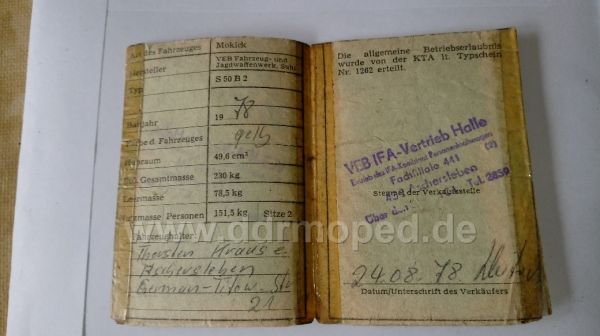 Art des Fahrzeuges Mokick
Hersteller VEB Fahrzeug- und
Jagdwaffenwerk, Suhl
Typ S 50 B 2
Baujahr 19 78
Farbe d. Fahrzeuges gelb
Hubraum 49,6 cm³
Zul. Gesamtmasse 230 kg
Leermasse 78,5 kg
Nutzmasse Personen 151,5 kg Sitze 2
Fahrzeughalter
Thorsten
Aschersleben
German-Titow-Str
21
Die allgemeine Betriebserlaubnis
wurde von der KTA lt. Typschein
Nr. 1262 erteilt.
VEB IFA-Vertrieb Halle
Fachfiliale 441 (2)
Aschersleben
Tel. 2859
Stempel der Verkaufsstelle
24.08.78
Datum/Unterschrift des Verkäufers
www.ddrmoped.de